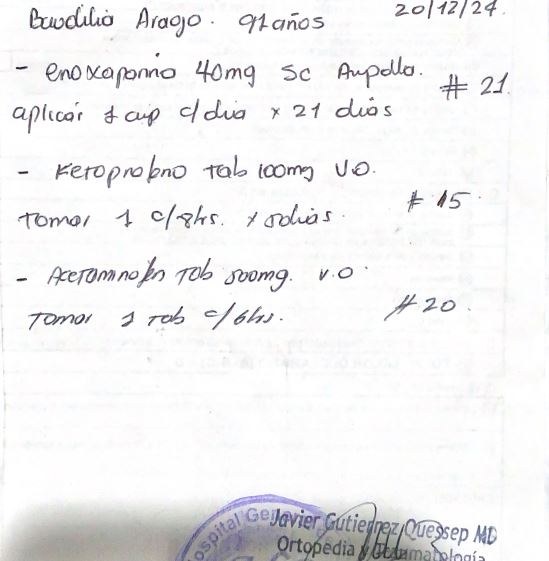 Baudilio Araujo. 91 años 20/12/24.
- enoxaparina 40mg SC Ampolla. # 21
aplicar 1 amp c/dia x 21 dias
- Ketoprofeno Tab 100mg VO. # 15
Tomar 1 c/8hrs. x 5dias.
- Acetaminofen Tab 500mg. V.O.
Tomar 1 Tab c/6hrs. # 20
Hospital Ge
Javier Gutierrez Quessep MD
Ortopedia y Traumatología